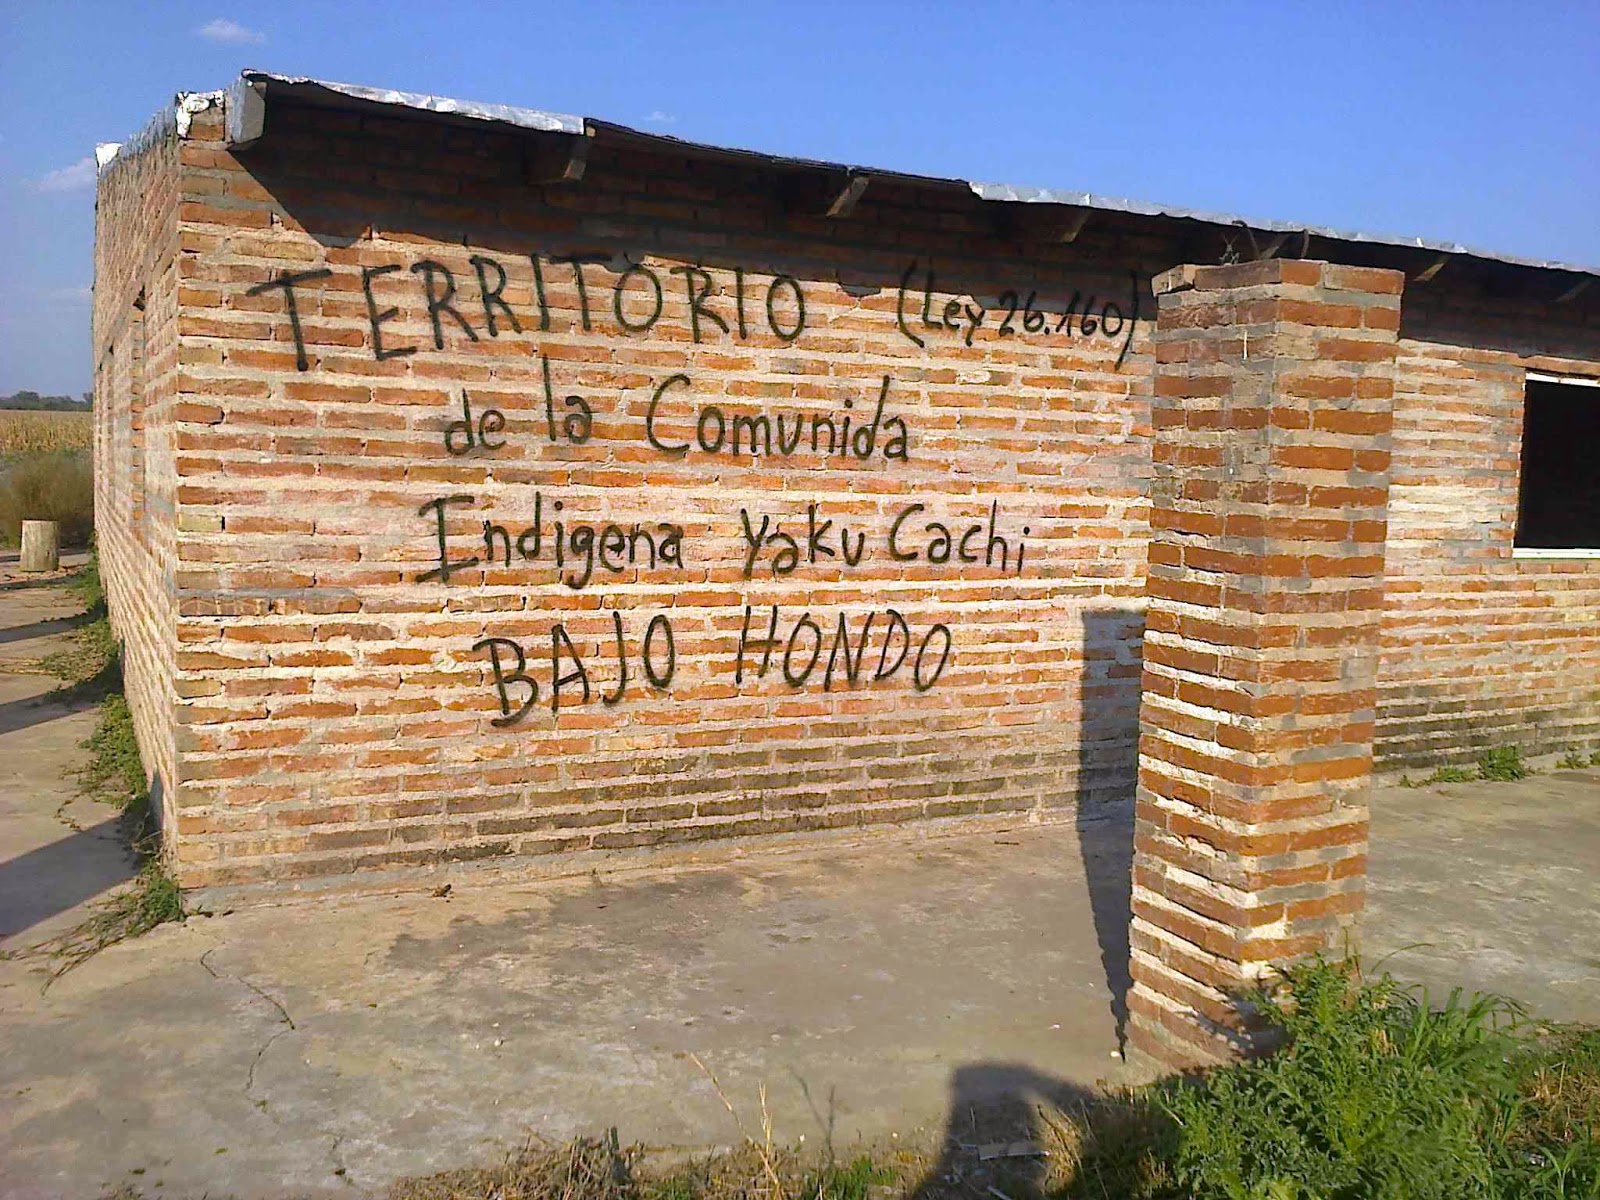 TERRITORIO (Ley 26.160)
de la Comunida
Indigena Yaku Cachi
BAJO HONDO